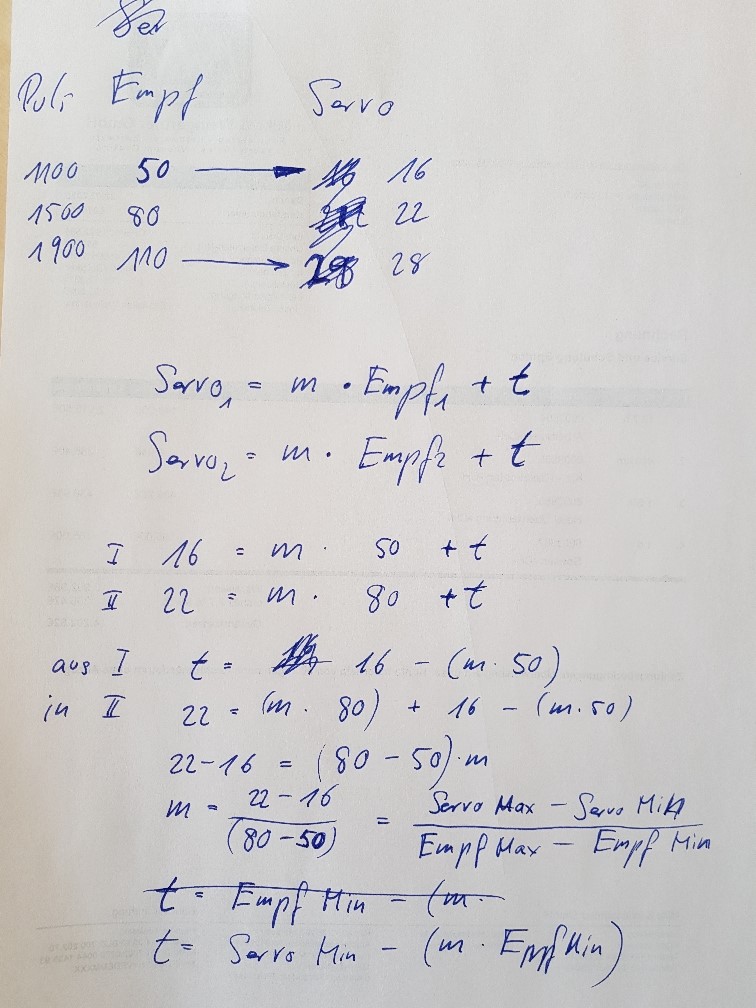 Puls Empf Servo
1100 50 16
1500 80 22
1900 110 28
Servo₁ = m · Empf₁ + t
Servo₂ = m · Empf₂ + t
I 16 = m · 50 + t
II 22 = m · 80 + t
aus I t = 16 - (m · 50)
in II 22 = (m · 80) + 16 - (m · 50)
22-16 = (80 - 50) · m
m = 22 - 16 / (80 - 50) = Servo Max - Servo Min / Empf Max - Empf Min
t = Empf Min - (m ·
t = Servo Min - (m · Empf Min)